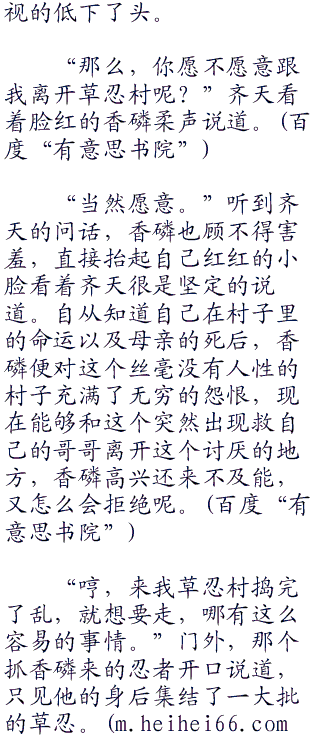 视的低下了头。
“那么，你愿不愿意跟
我离开草忍村呢？”齐天看
着脸红的香磷柔声说道。(百
度“有意思书院”)
“当然愿意。”听到齐
天的问话，香磷也顾不得害
羞，直接抬起自己红红的小
脸看着齐天很是坚定的说
道。自从知道自己在村子里
的命运以及母亲的死后，香
磷便对这个丝毫没有人性的
村子充满了无穷的怨恨，现
在能够和这个突然出现救自
己的哥哥离开这个讨厌的地
方，香磷高兴还来不及能，
又怎么会拒绝呢。(百度“有
意思书院”)
“哼，来我草忍村捣完
了乱，就想要走，哪有这么
容易的事情。”门外，那个
抓香磷来的忍者开口说道，
只见他的身后集结了一大批
的草忍。(m.heihei66.com